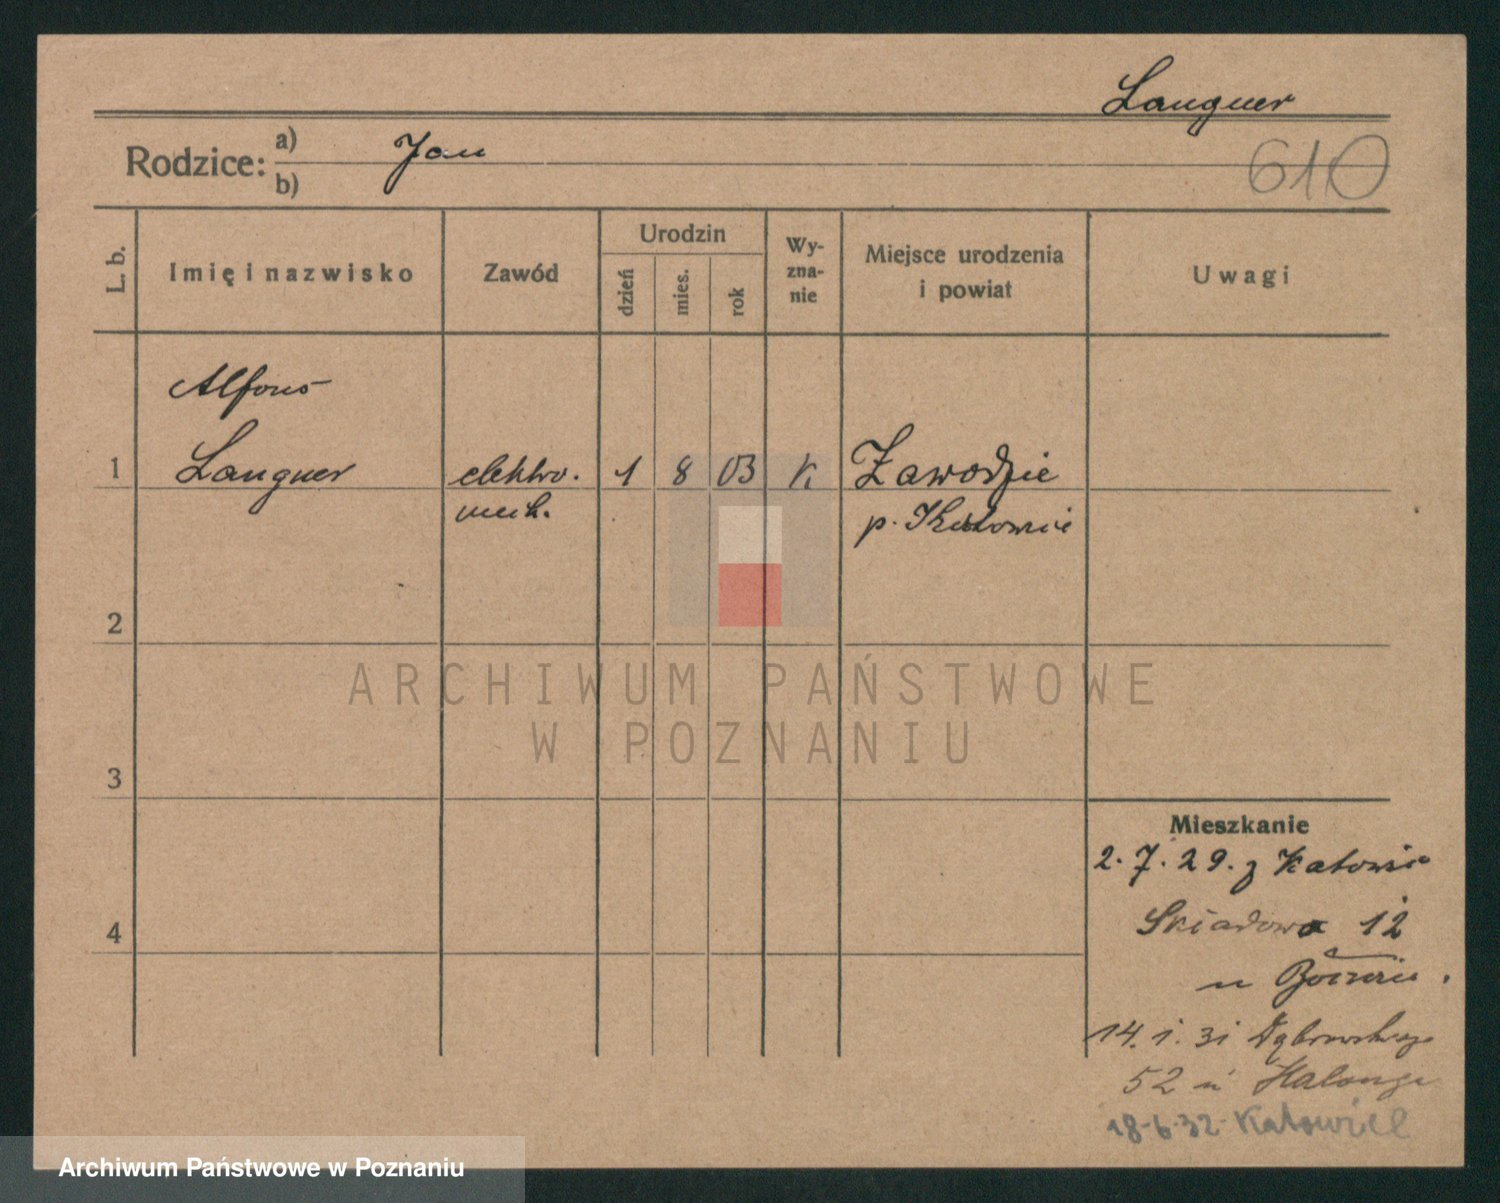 Langner
610
Rodzice:
a) Jan
b)
L. b.
Imię i nazwisko
Zawód
Urodzin
dzień
mies.
rok
Wy-
zna-
nie
Miejsce urodzenia
i powiat
Uwagi
Alfons
1 Langner elektro. 1 8 03 K Zawodzie
mech. p. Katowice
2
ARCHIWUM PAŃSTWOWE
W POZNANIU
3
Mieszkanie
2. 7. 29. z Katowic
4
Składowa 12
u
14. 1. 31 Dąbrowskiego
52 u
18-6-32 Katowice
Archiwum Państwowe w Poznaniu